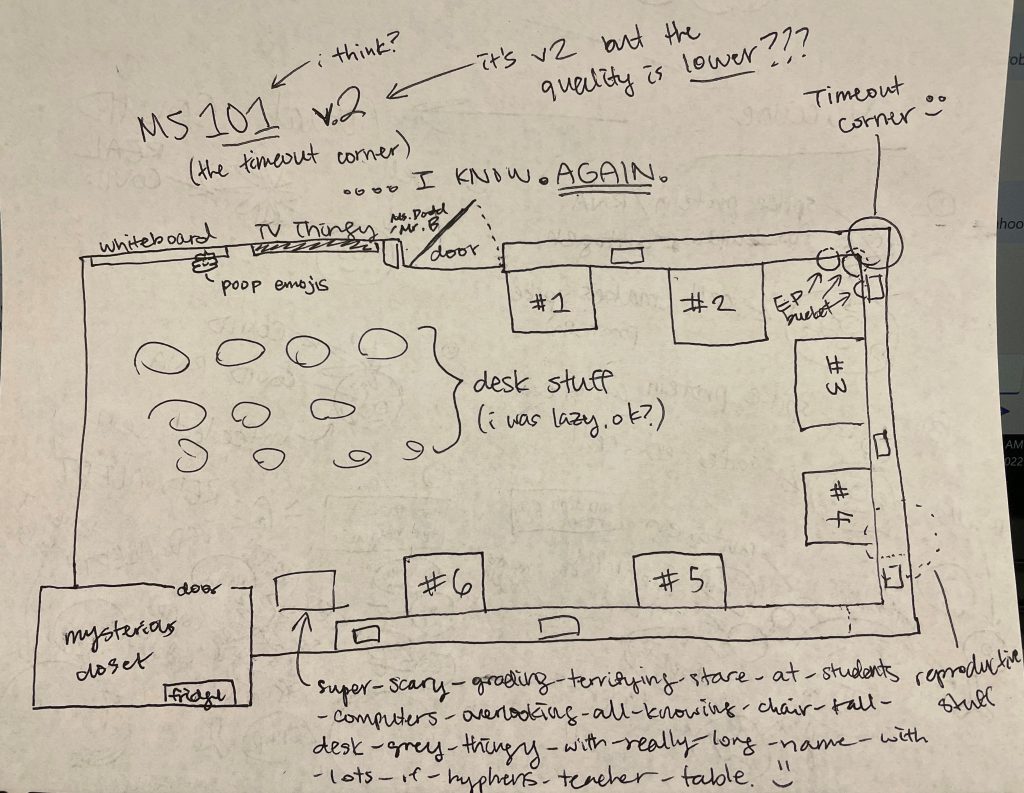 i think?
it's v2 but the
quality is lower???
MS 101 v.2
(the timeout corner)
.... I KNOW. AGAIN.
Timeout
corner :)
whiteboard
TV Thingy
Ms. Dodd
Mr. B
door
poop emojis
#1
#2
EP
bucket
#3
#4
desk stuff
(i was lazy, ok?)
#6
#5
door
mysterious
closet
fridge
reproductive
stuff
super-scary-grading-terrifying-stare-at-students
-computers-overlooking-all-knowing-chair-tall-
desk-grey-thingy-with-really-long-name-with
-lots-of-hyphens-teacher-table. :)